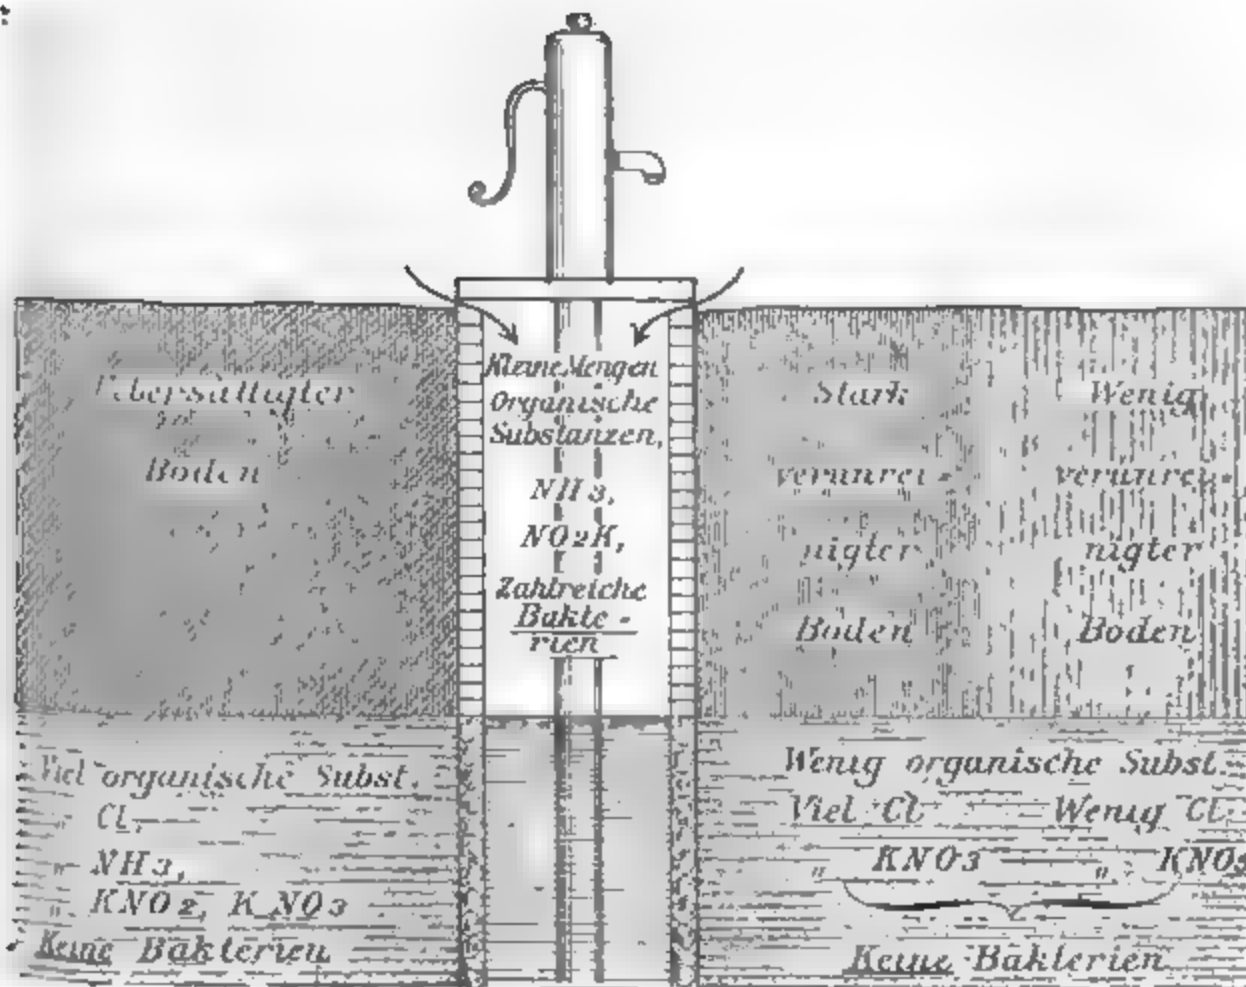 Uebersättigter
Boden
Kleine Mengen
Organische
Substanzen,
NH3,
NO2K,
Zahlreiche
Bakte-
rien
Stark
verunrei-
nigter
Boden
Wenig
verunrei-
nigter
Boden
Viel organische Subst.
" Cl,
" NH3,
" KNO2, KNO3
Keine Bakterien
Wenig organische Subst.
Viel Cl Wenig Cl,
" KNO3 " KNO3
Keine Bakterien